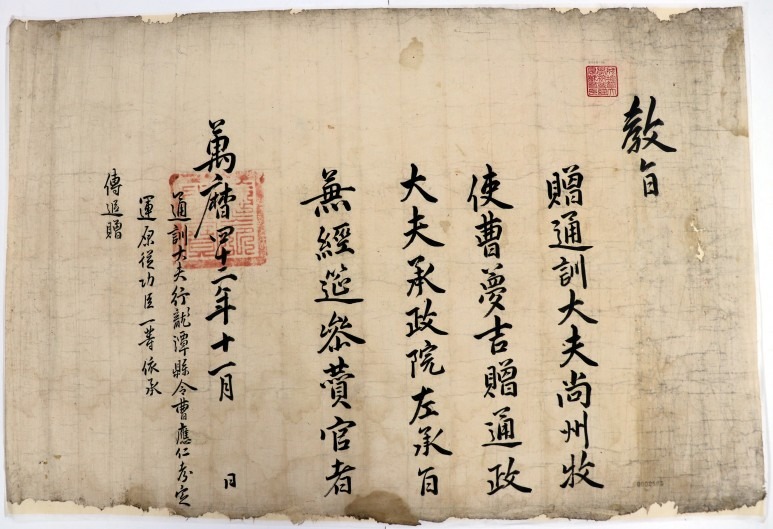 教旨
贈通訓大夫尚州牧
使曹夢吉贈通政
大夫承政院左承旨
兼經筵叅贊官者
萬曆四十二年十一月 日
通訓大夫行龍潭縣令曹應仁考定
運原從功臣一等依承
傳追贈